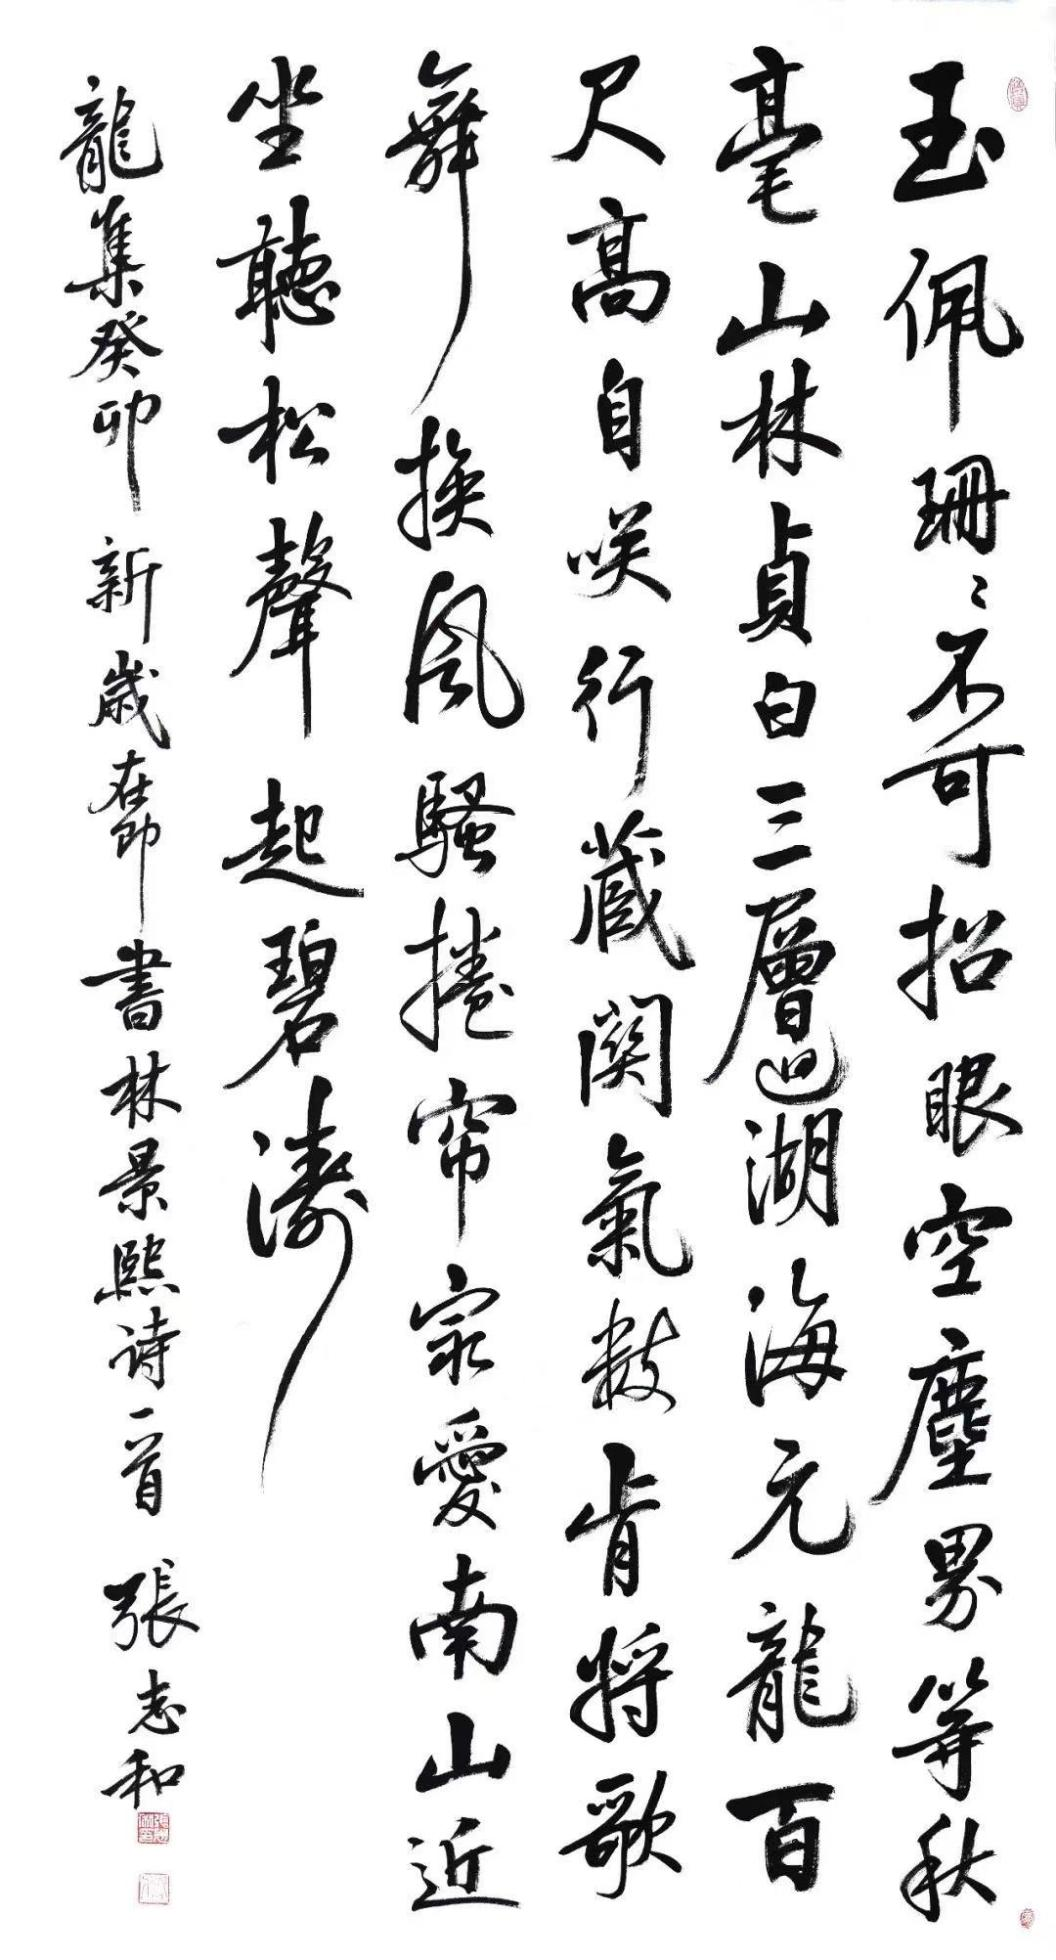 玉佩珊〻不可招眼空塵界等秋
毫山林貞白三層迴湖海元龍百
尺高自咲行藏関氣数肯将歌
舞換風騷捲帘家愛南山近
坐聽松聲起碧濤
龍集癸卯新歲在即書林景熙诗一首張志和